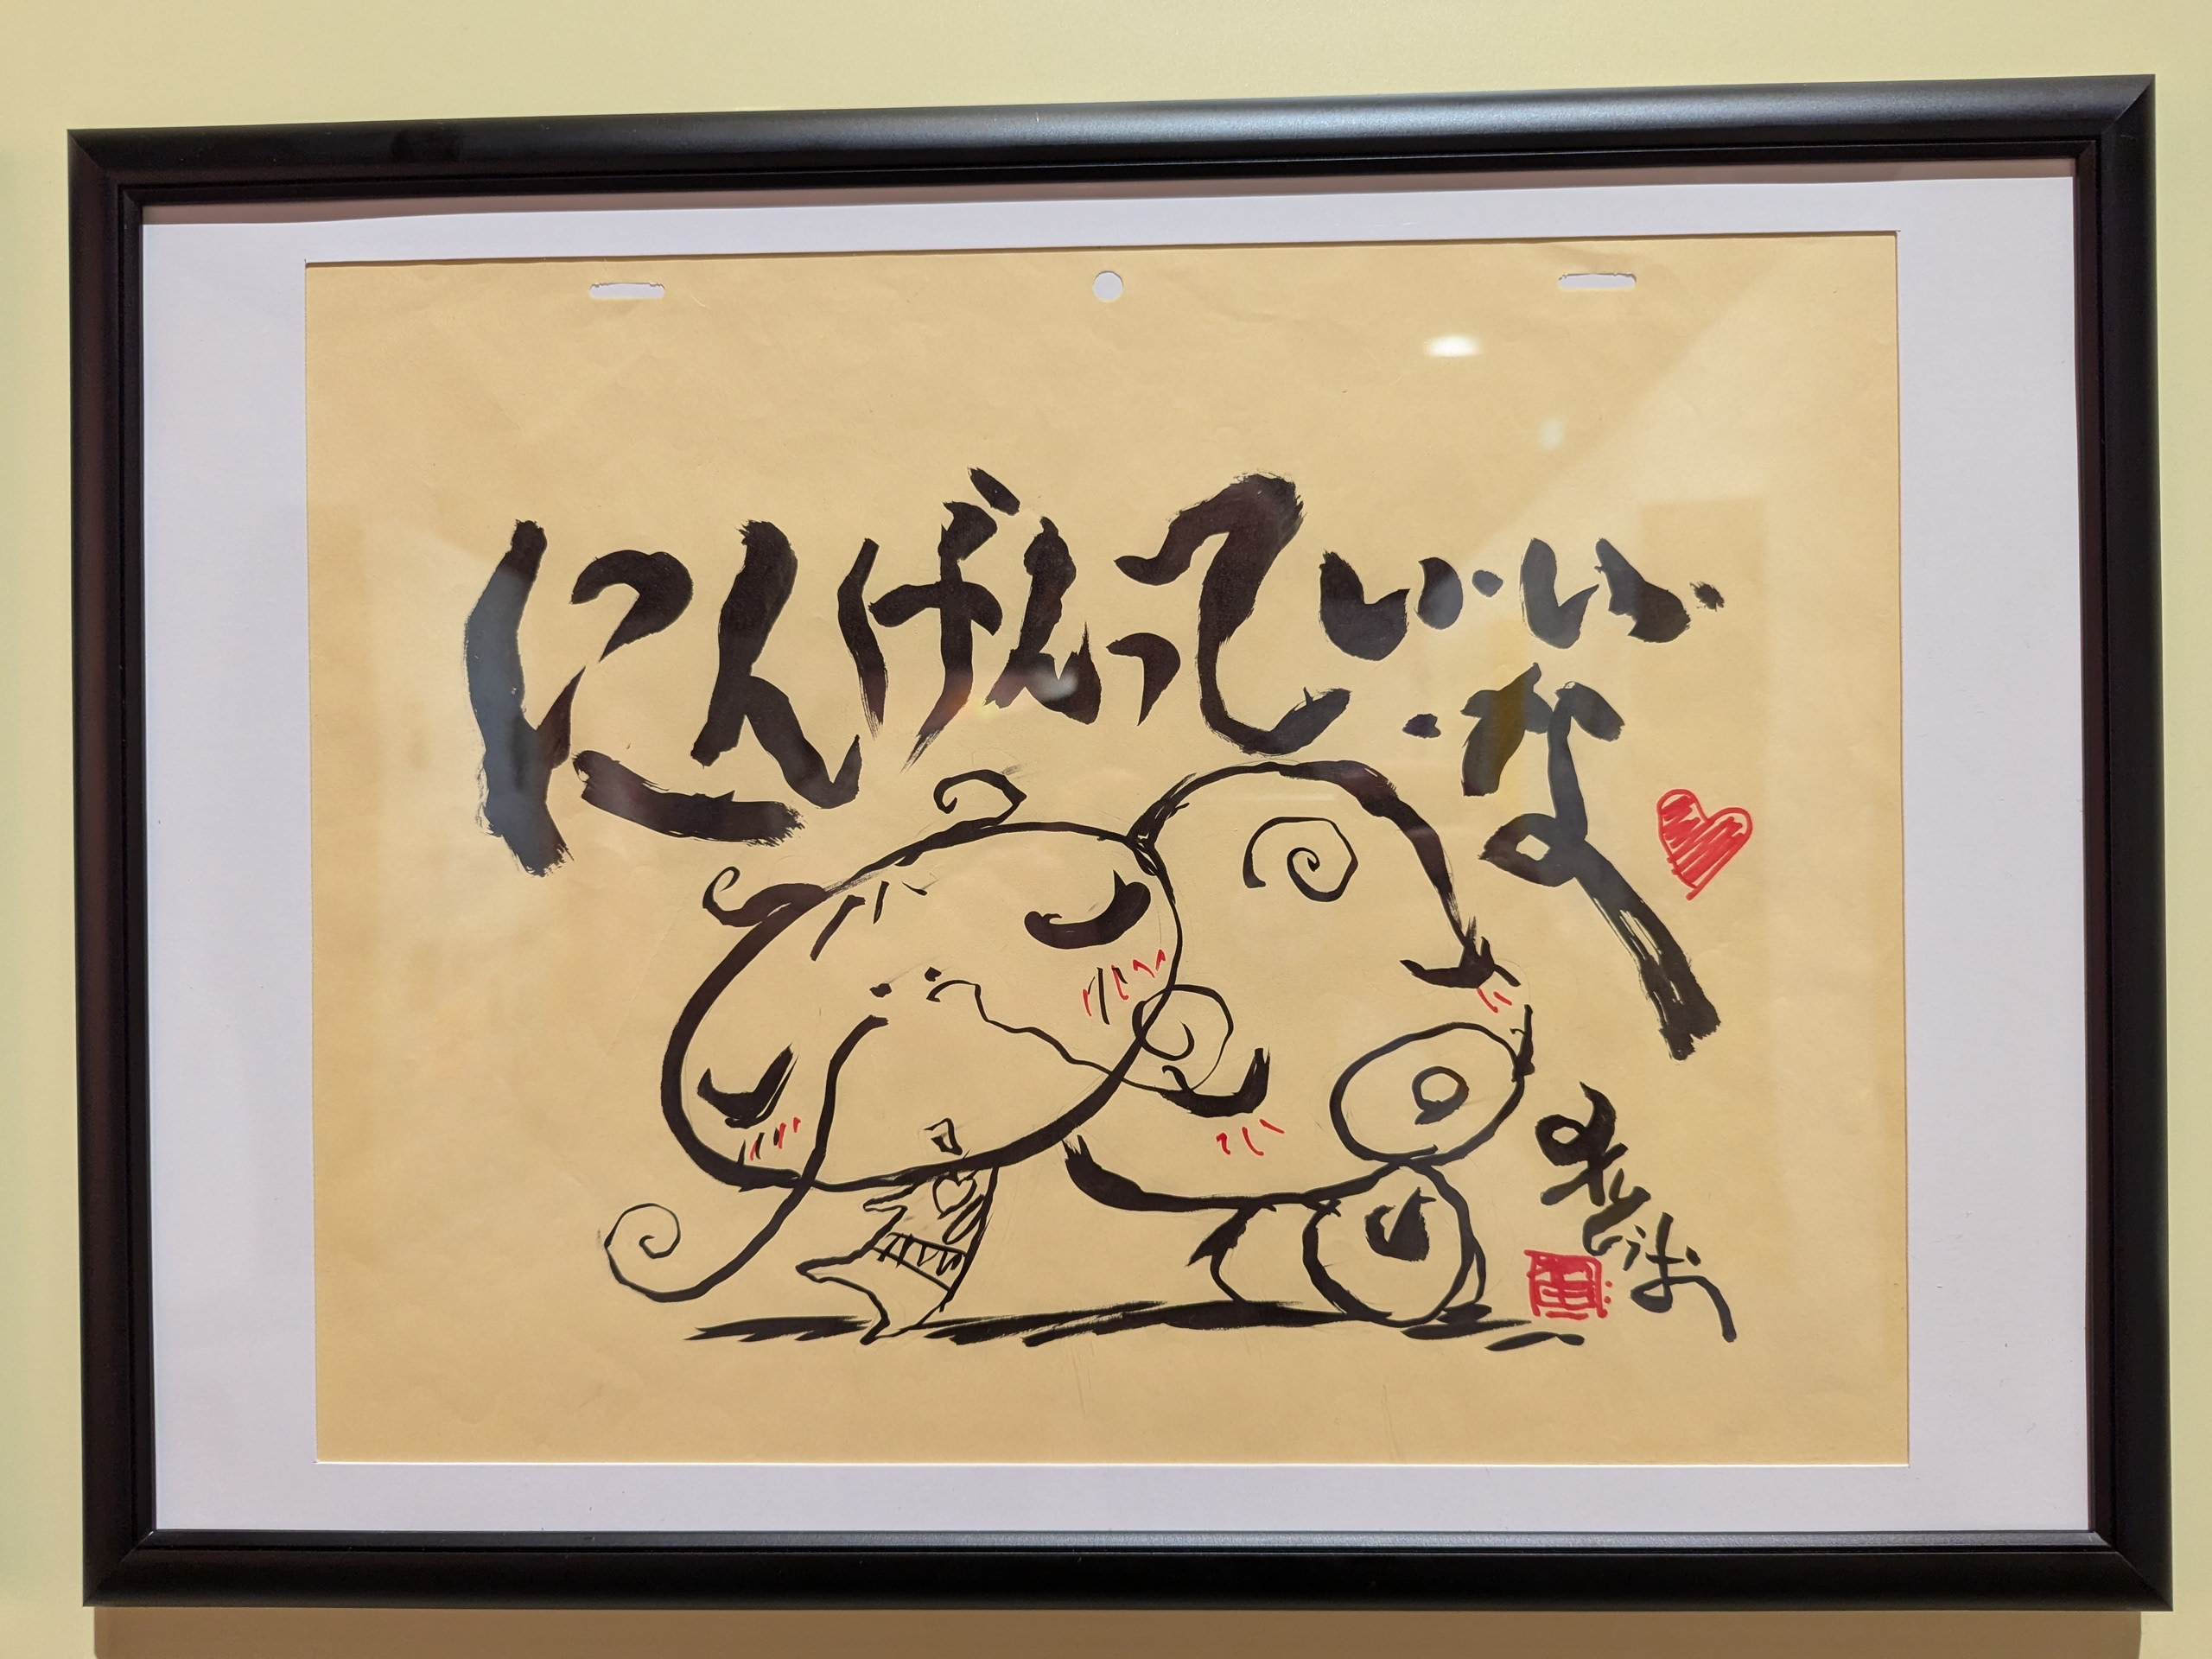 にんげんっていいな